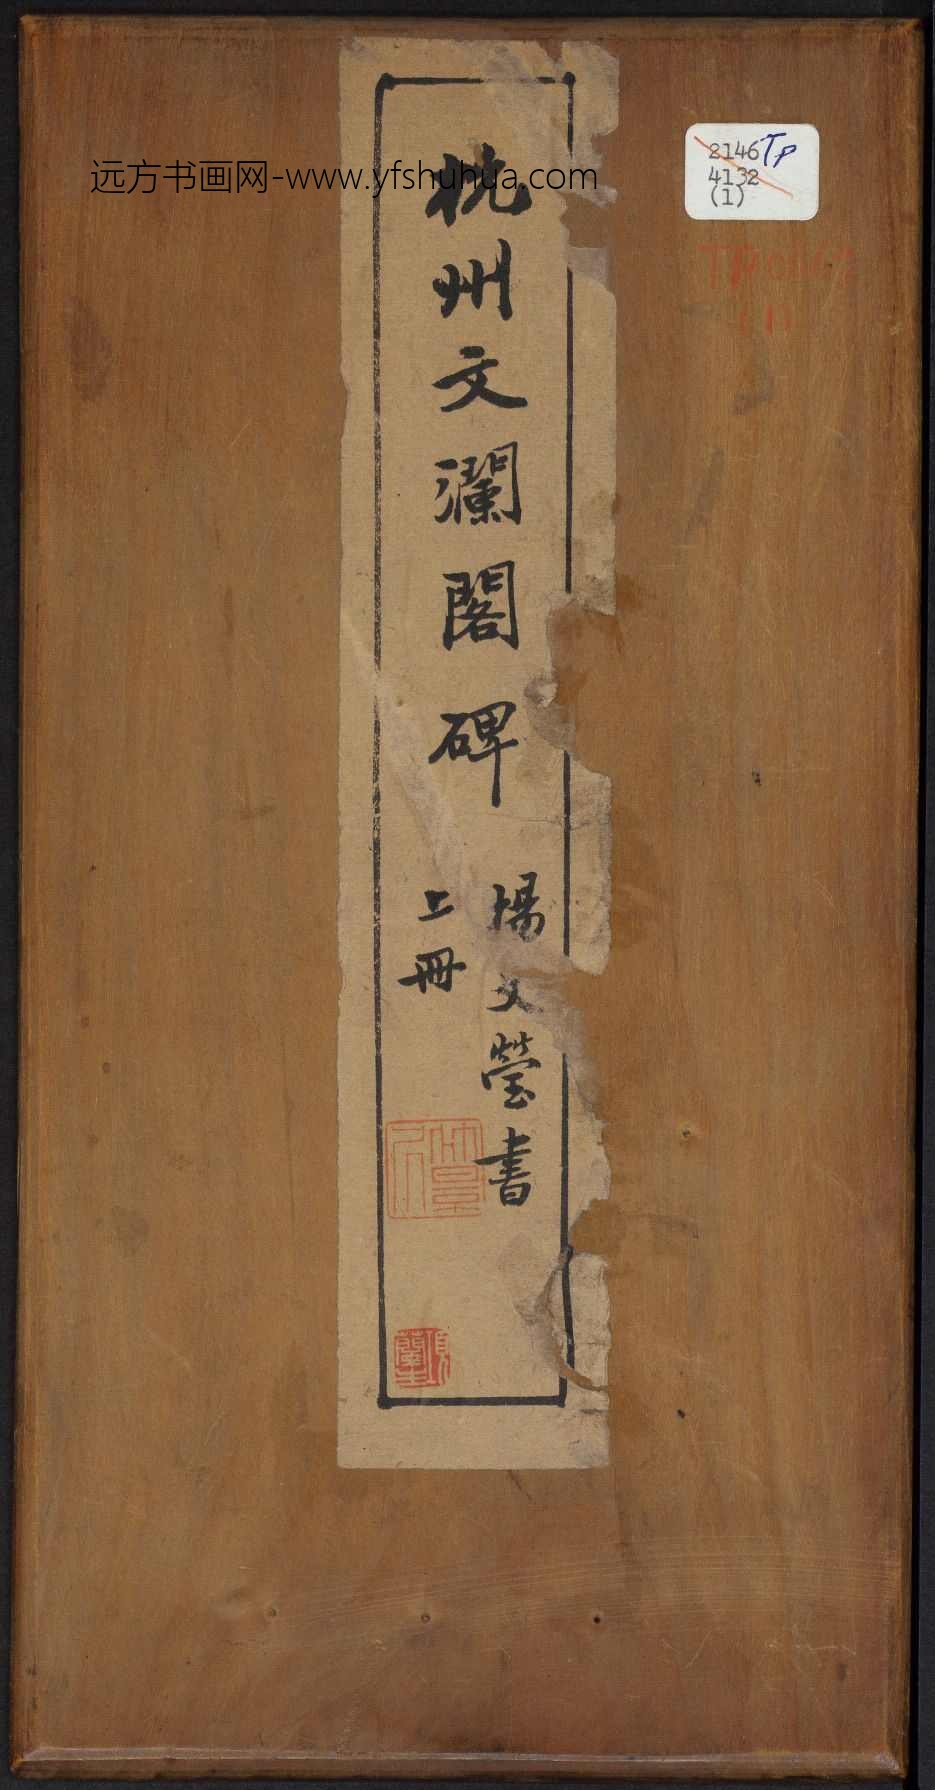 远方书画网-www.yfshuhua.com
杭州文瀾閣碑
楊文瑩書
上冊
2146 TP
4132
(1)